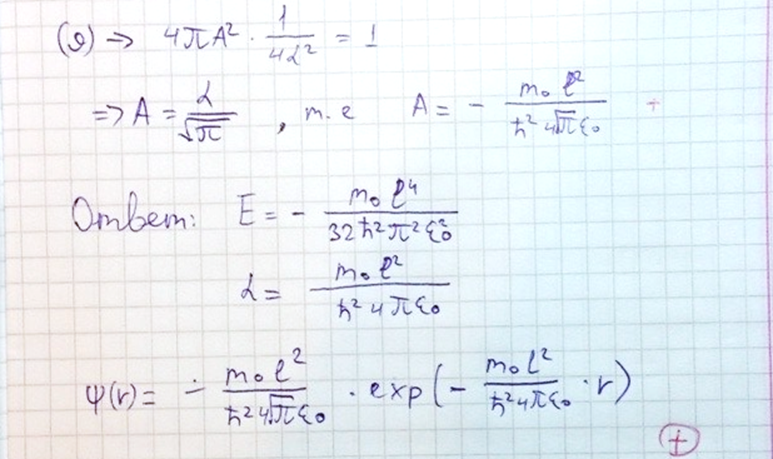 (9) => 4πA² · 1/(4α²) = 1
=> A = α/√π , т.е A = - m₀e²/(ħ²4√πε₀) +
Ответ: E = - m₀e⁴/(32ħ²π²ε₀²)
α = m₀e²/(ħ²4πε₀)
ψ(r) = ÷ m₀e²/(ħ²4√πε₀) · exp(- m₀e²/(ħ²4πε₀) · r)
+